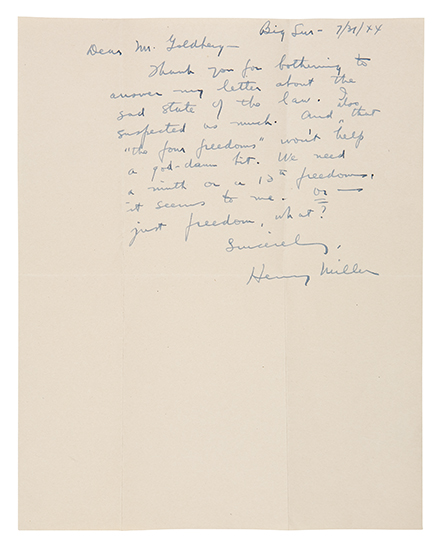 Big Sur - 7/31/44
Dear Mr. Goldberg -
Thank you for bothering to
answer my letter about the
sad state of the law. I
suspected as much. And also that
"the four freedoms" won't help
a god-damn bit. We need
a ninth or a 13th freedoms,
it seems to me. Or —
just freedom, what?
Sincerely,
Henry Miller